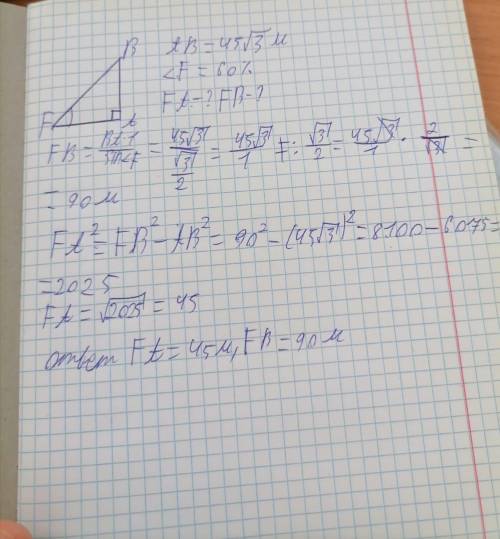 B
AB = 45√3 м
∠F = 60%
FA = ? FB - ?
F A
FB = BA / sin∠F = 45√3 / (√3/2) = 45√3/1 : √3/2 = 45√3/1 · 2/√3 =
= 90 м
FA² = FB² - AB² = 90² - (45√3)² = 8100 - 6075 =
= 2025
FA = √2025 = 45
ответ FA = 45 м, FB = 90 м